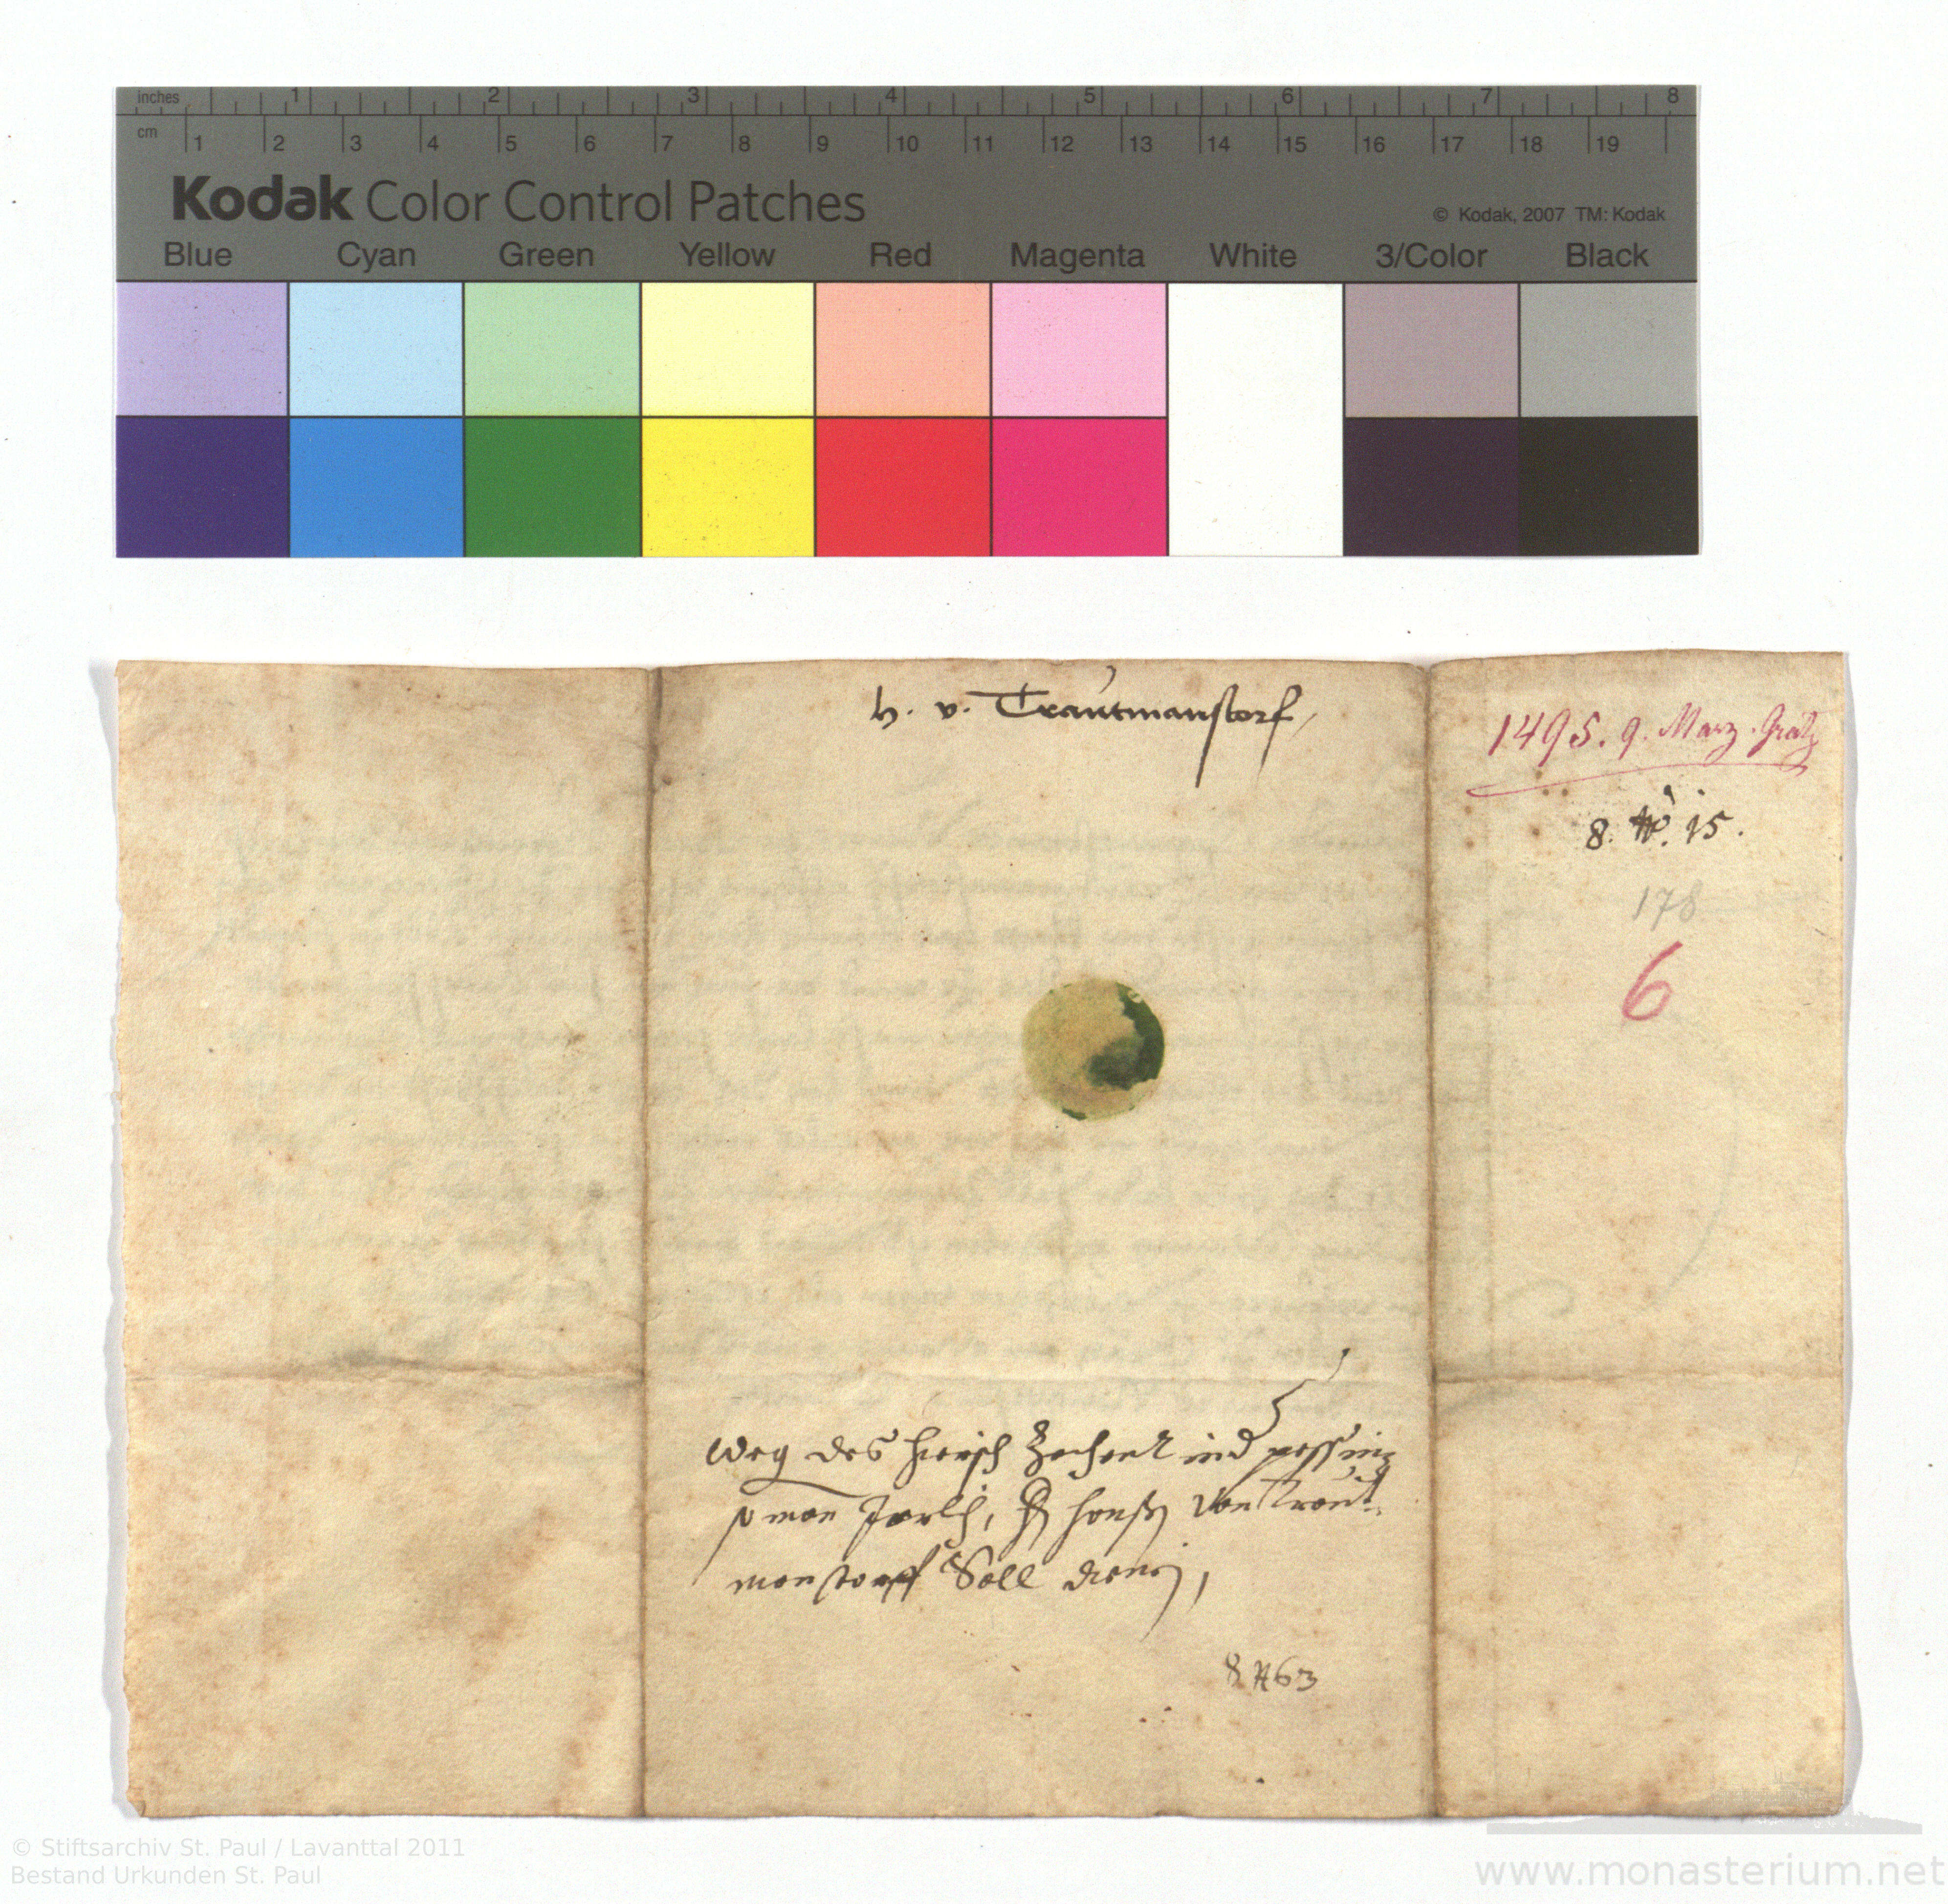 inches 1 2 3 4 5 6 7 8
cm 1 2 3 4 5 6 7 8 9 10 11 12 13 14 15 16 17 18 19
Kodak Color Control Patches
© Kodak, 2007 TM: Kodak
Blue Cyan Green Yellow Red Magenta White 3/Color Black
h. v. Trautmanstorf,
1495. 9. Marz. Gratz
8. 15.
178
6
weg des hiersch Zechent
Jarlh, von Traut
manstorff Soll dienen,
63
© Stiftsarchiv St. Paul / Lavanttal 2011
Bestand Urkunden St. Paul
www.monasterium.net